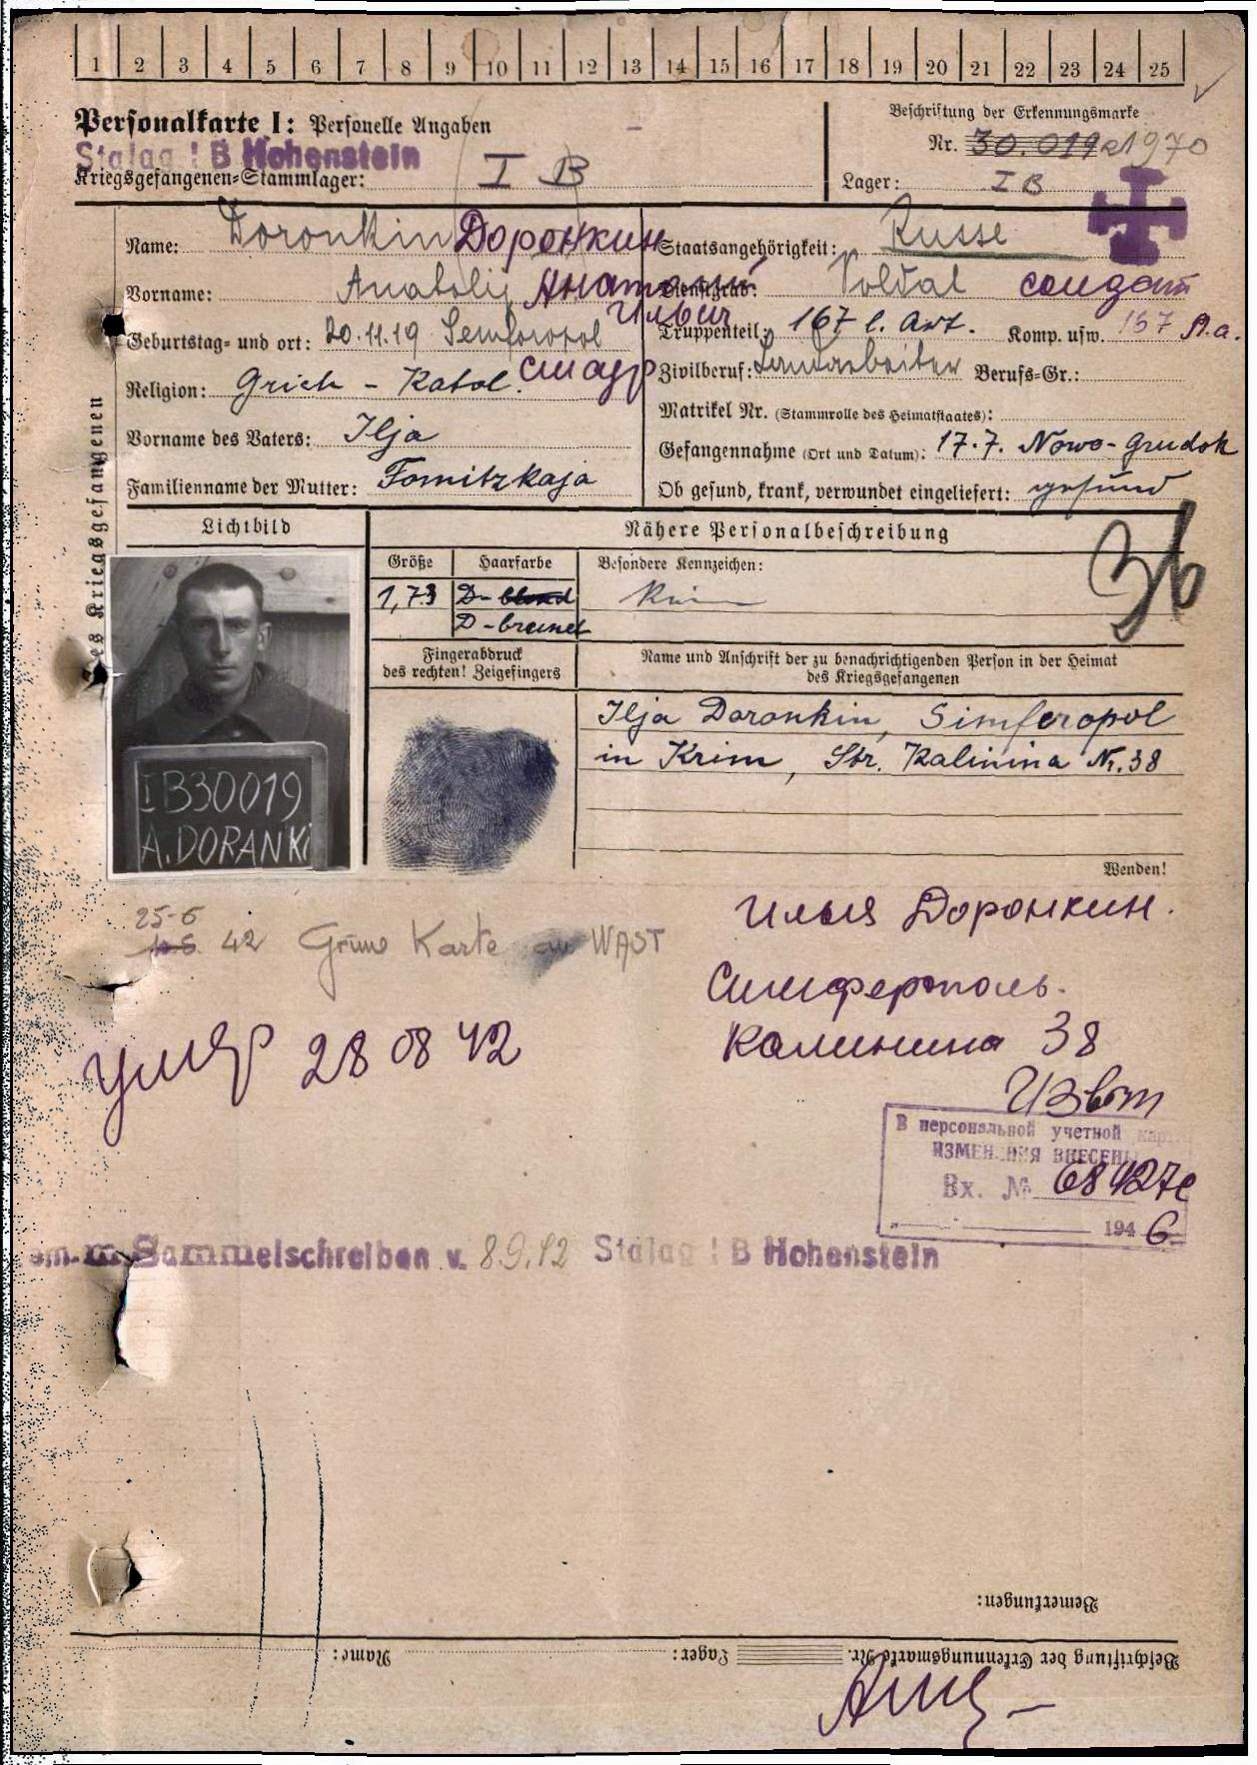 1 2 3 4 5 6 7 8 9 10 11 12 13 14 15 16 17 18 19 20 21 22 23 24 25
Personalkarte I: Personelle Angaben
Stalag I B Hohenstein
Kriegsgefangenen-Stammlager: I B
Beschriftung der Erkennungsmarke
Nr. 30.019 1970
Lager: I B
des Kriegsgefangenen
Name: Doronkin Доронкин
Vorname: Anatolij Анатолий
Ильич
Geburtstag- und ort: 20.11.19 Semforopol
Religion: Grich - Katol.
Vorname des Vaters: Ilja
Familienname der Mutter: Fomitzkaja
Staatsangehörigkeit: Russe
Dienstgrad: Soldat солдат
Truppenteil: 167 l. Art. Komp. usw. 167 А.а.
Zivilberuf: Landarbeiter Berufs-Gr.:
Matrikel Nr. (Stammrolle des Heimatstaates):
Gefangennahme (Ort und Datum): 17.7. Nowo-Grudok
Ob gesund, krank, verwundet eingeliefert: gesund
Lichtbild
Nähere Personalbeschreibung
Größe Haarfarbe Besondere Kennzeichen:
1,73 D- blond
D-braun
36
Fingerabdruck
des rechten! Zeigefingers
Name und Anschrift der zu benachrichtigenden Person in der Heimat
des Kriegsgefangenen
Ilja Doronkin, Simferopol
in Krim, Str. Kalinina Nr. 38
I B30019
A. DORANKI
Wenden!
Илья Доронкин.
25-6
42 Grüne Karte an WAST
Симферополь.
Калинина 38
умер 28 08 42
Извът
В персональной учетной карт
ИЗМЕНЕНИЯ ВНЕСЕНЫ
Вх. № 68427с
194 6
m. Sammelschreiben v. 8.9.42 Stalag I B Hohenstein
Bemerkungen:
Beschriftung der Erkennungsmarke Nr. Lager: Name: